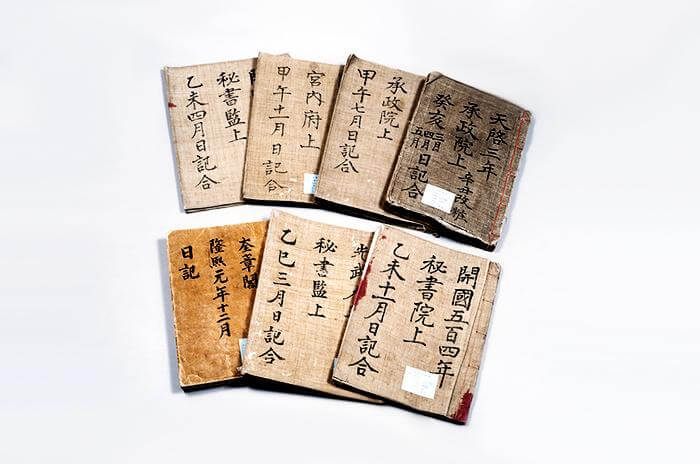 天啓三年
承政院上
癸亥三月四月五月日記合
承政院上
甲午七月日記合
宮內府上
甲午十一月日記合
秘書監上
乙未四月日記合
開國五百四年
秘書院上
乙未十一月日記合
光武
秘書監上
乙巳三月日記合
奎章閣
隆熙元年十二月
日記